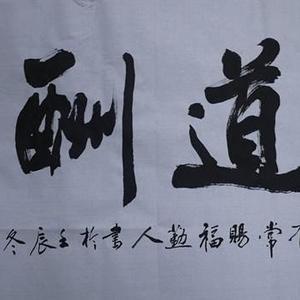 道酬
常賜福勤人書於壬辰冬